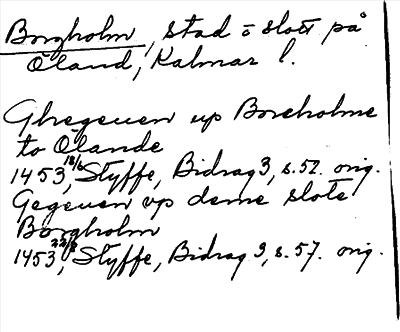 Borgholm, stad o slott på
Öland, Kalmar l.
Ghegeuen up Borcholme
to Ölande
1453 18/6, Styffe, Bidrag 3, s. 52. orig.
Gegeuen vp deme slote
Borgholm
1453 22/8, Styffe, Bidrag 3, s. 57. orig.